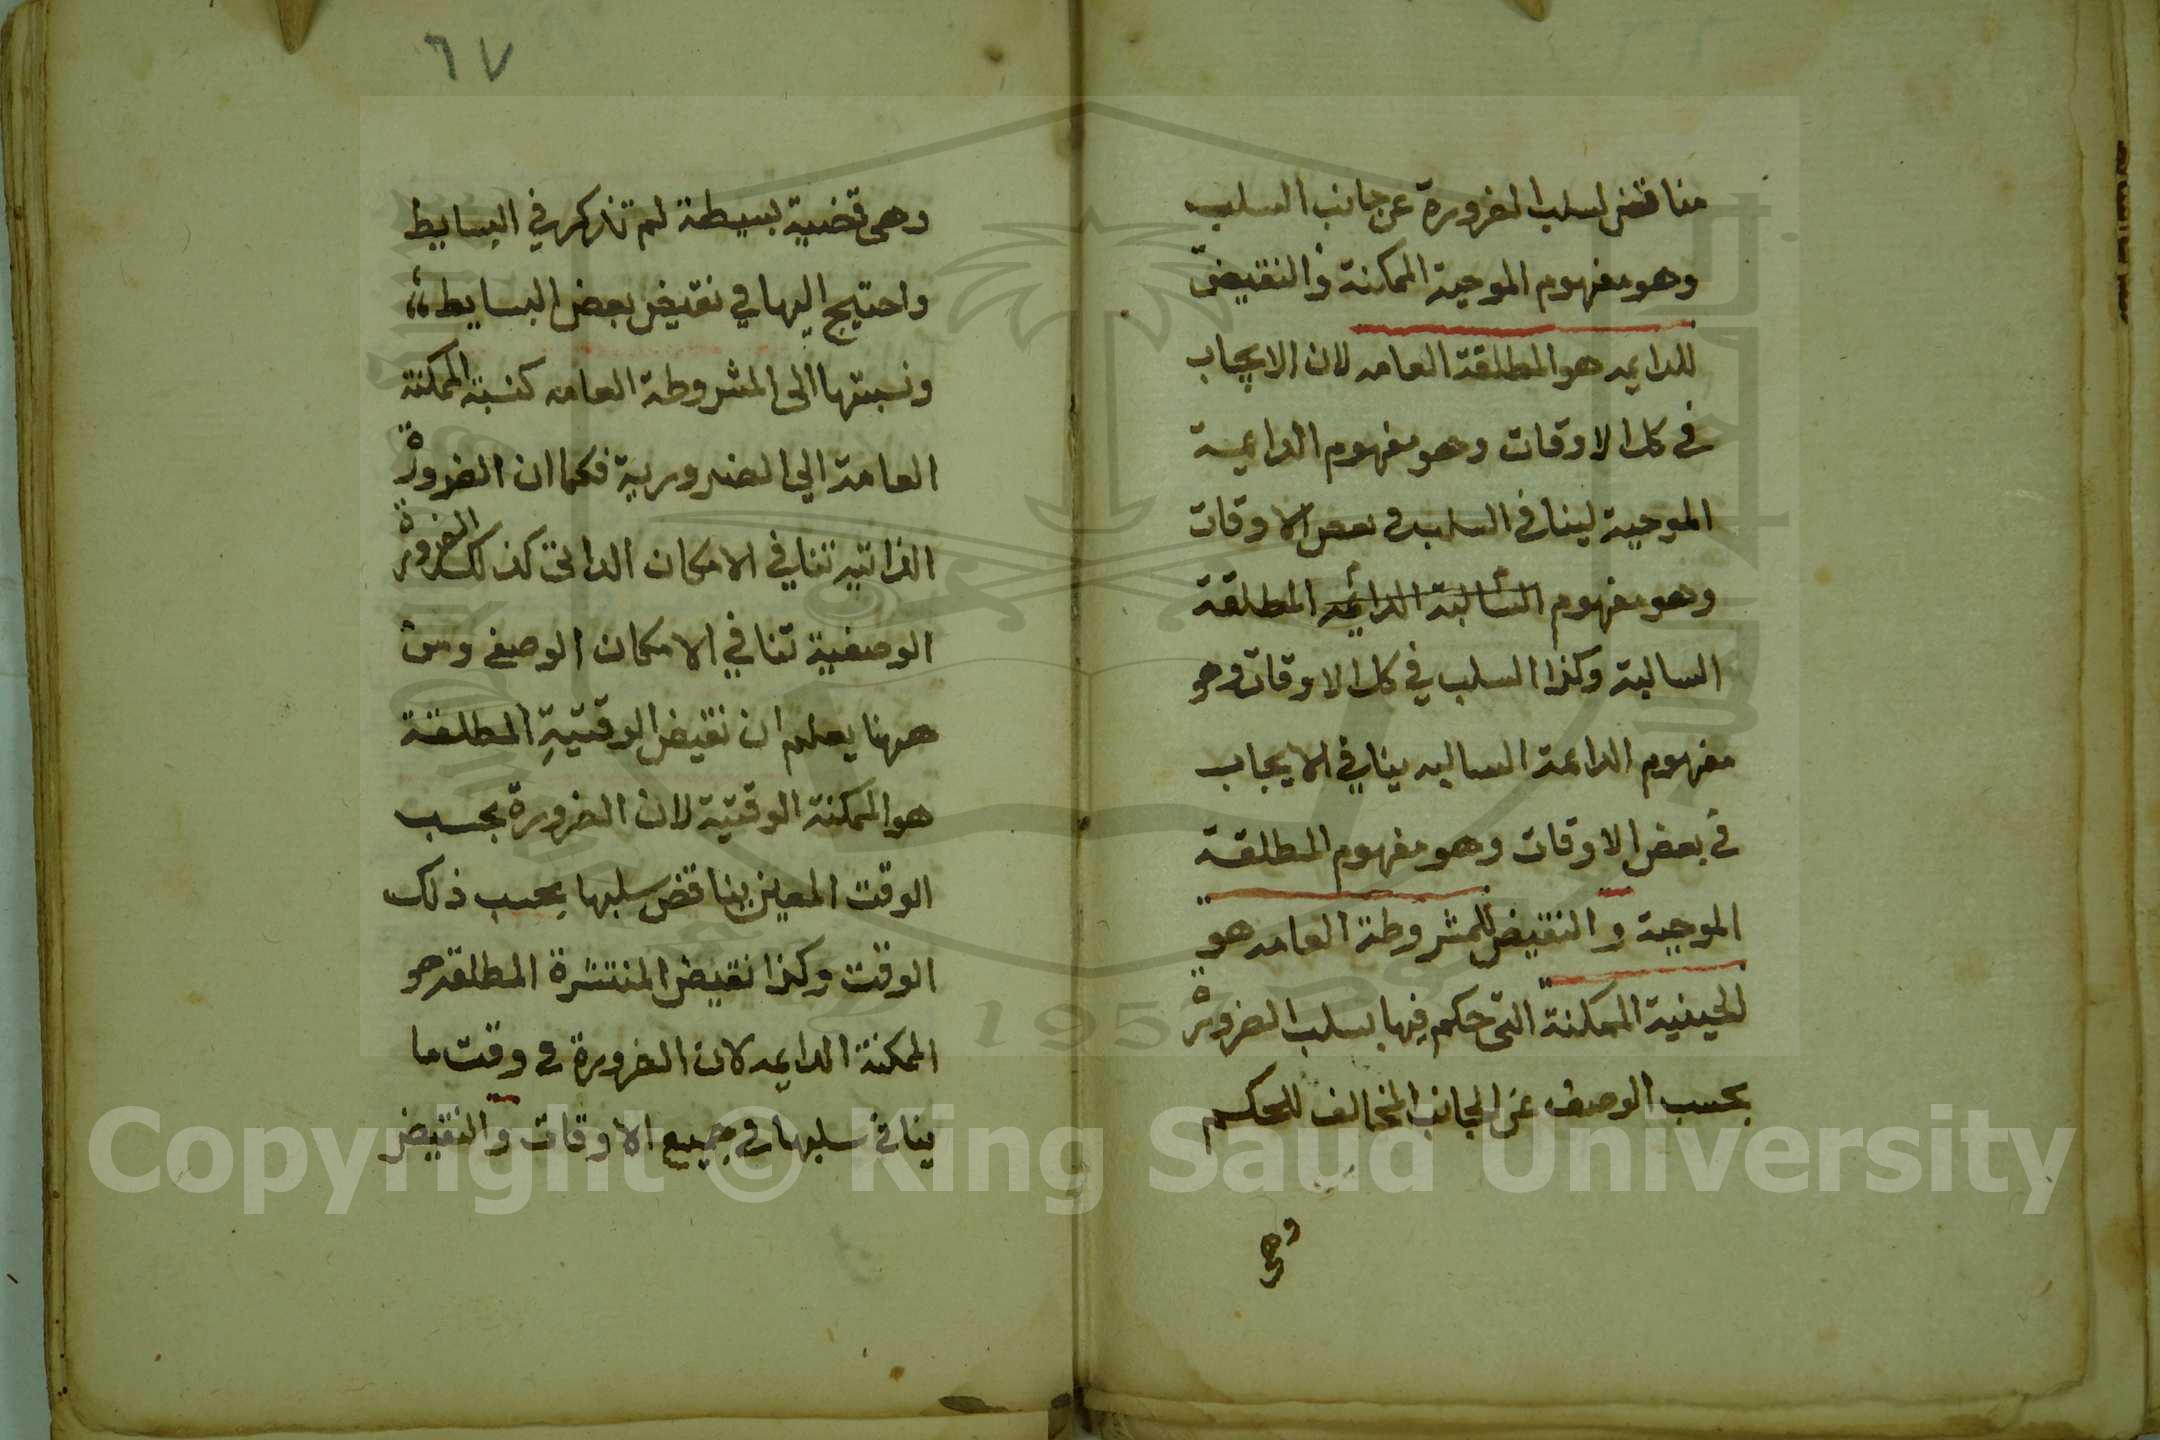 مناقض لسلب الضرورة عن جانب السلب
وهو مفهوم الموجبة الممكنة و النقيض
للدايمه هو المطلقة العامه لان الايجاب
في كل الاوقات وهو مفهوم الدايمة
الموجبة لينافي السلب في بعض الاوقات
وهو مفهوم السالبة الدايمه المطلقة
السالبة وكذا السلب في كل الاوقات وهو
مفهوم الدايمة السالبه ينافي الايجاب
في بعض الاوقات وهو مفهوم المطلقة
الموجبة و النقيض للمشروطة العامه هو
الحينية الممكنة التي حكم فيها بسلب الضرورة
بحسب الوصف عن الجانب المخالف للحكم
وهي
٦٧
وهي قضية بسيطة لم تذكر في البسايط
واحتيج اليها في نقيض بعض البسايط
ونسبتها الى المشروطة العامه كنسبة الممكنة
العامة الى الضرورية فكما ان الضرورة
الذاتيه تنافي الامكان الذاتي كذلك الضرورة
الوصفية تنافي الامكان الوصفي ومن
ههنا يعلم ان نقيض الوقتية المطلقة
هو الممكنة الوقتية لان الضرورة بحسب
الوقت المعين يناقض سلبها بحسب ذلك
الوقت وكذا نقيض المنتشرة المطلقة هو
الممكنة الدايمه لان الضرورة في وقت ما
ينافي سلبها في جميع الاوقات والنقيض
1957
Copyright © King Saud University